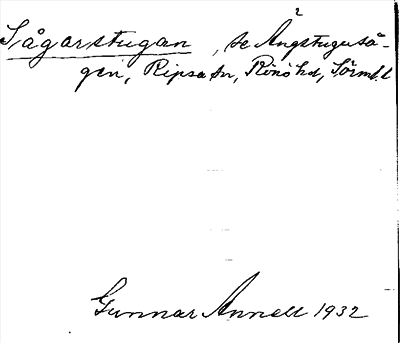 Sågarstugan, se Ängstuguså-
gen, Ripsa sn, Rönö hd, Sörml.
Gunnar Annell 1932